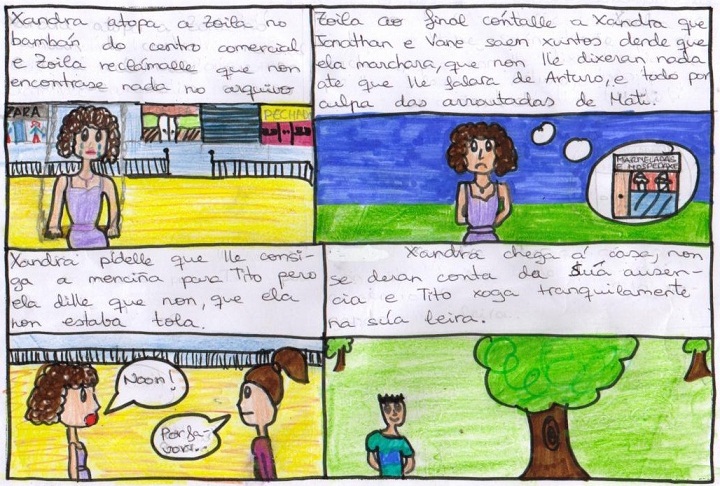 Xandra atopa a Zoila no
bambán do centro comercial
e Zoila reclámalle que non
encontrase nada no arquivo
ZARA
PECHADO
Zoila ao final cóntalle a Xandra que
Jonathan e Vane saen xuntos dende que
ela marchara, que non lle dixeran nada
ate que lle falara de Arturo, e todo por
culpa das arroutadas de Mati.
MARMELADAS
E HOSPEDAXE
Xandra pídelle que lle consi-
ga a menciña para Tito pero
ela dille que non, que ela
non estaba tola.
Noon!
Por fa-
vor...
Xandra chega á casa, non
se deran conta da súa ausen-
cia e Tito xoga tranquilamente
na súa leira.